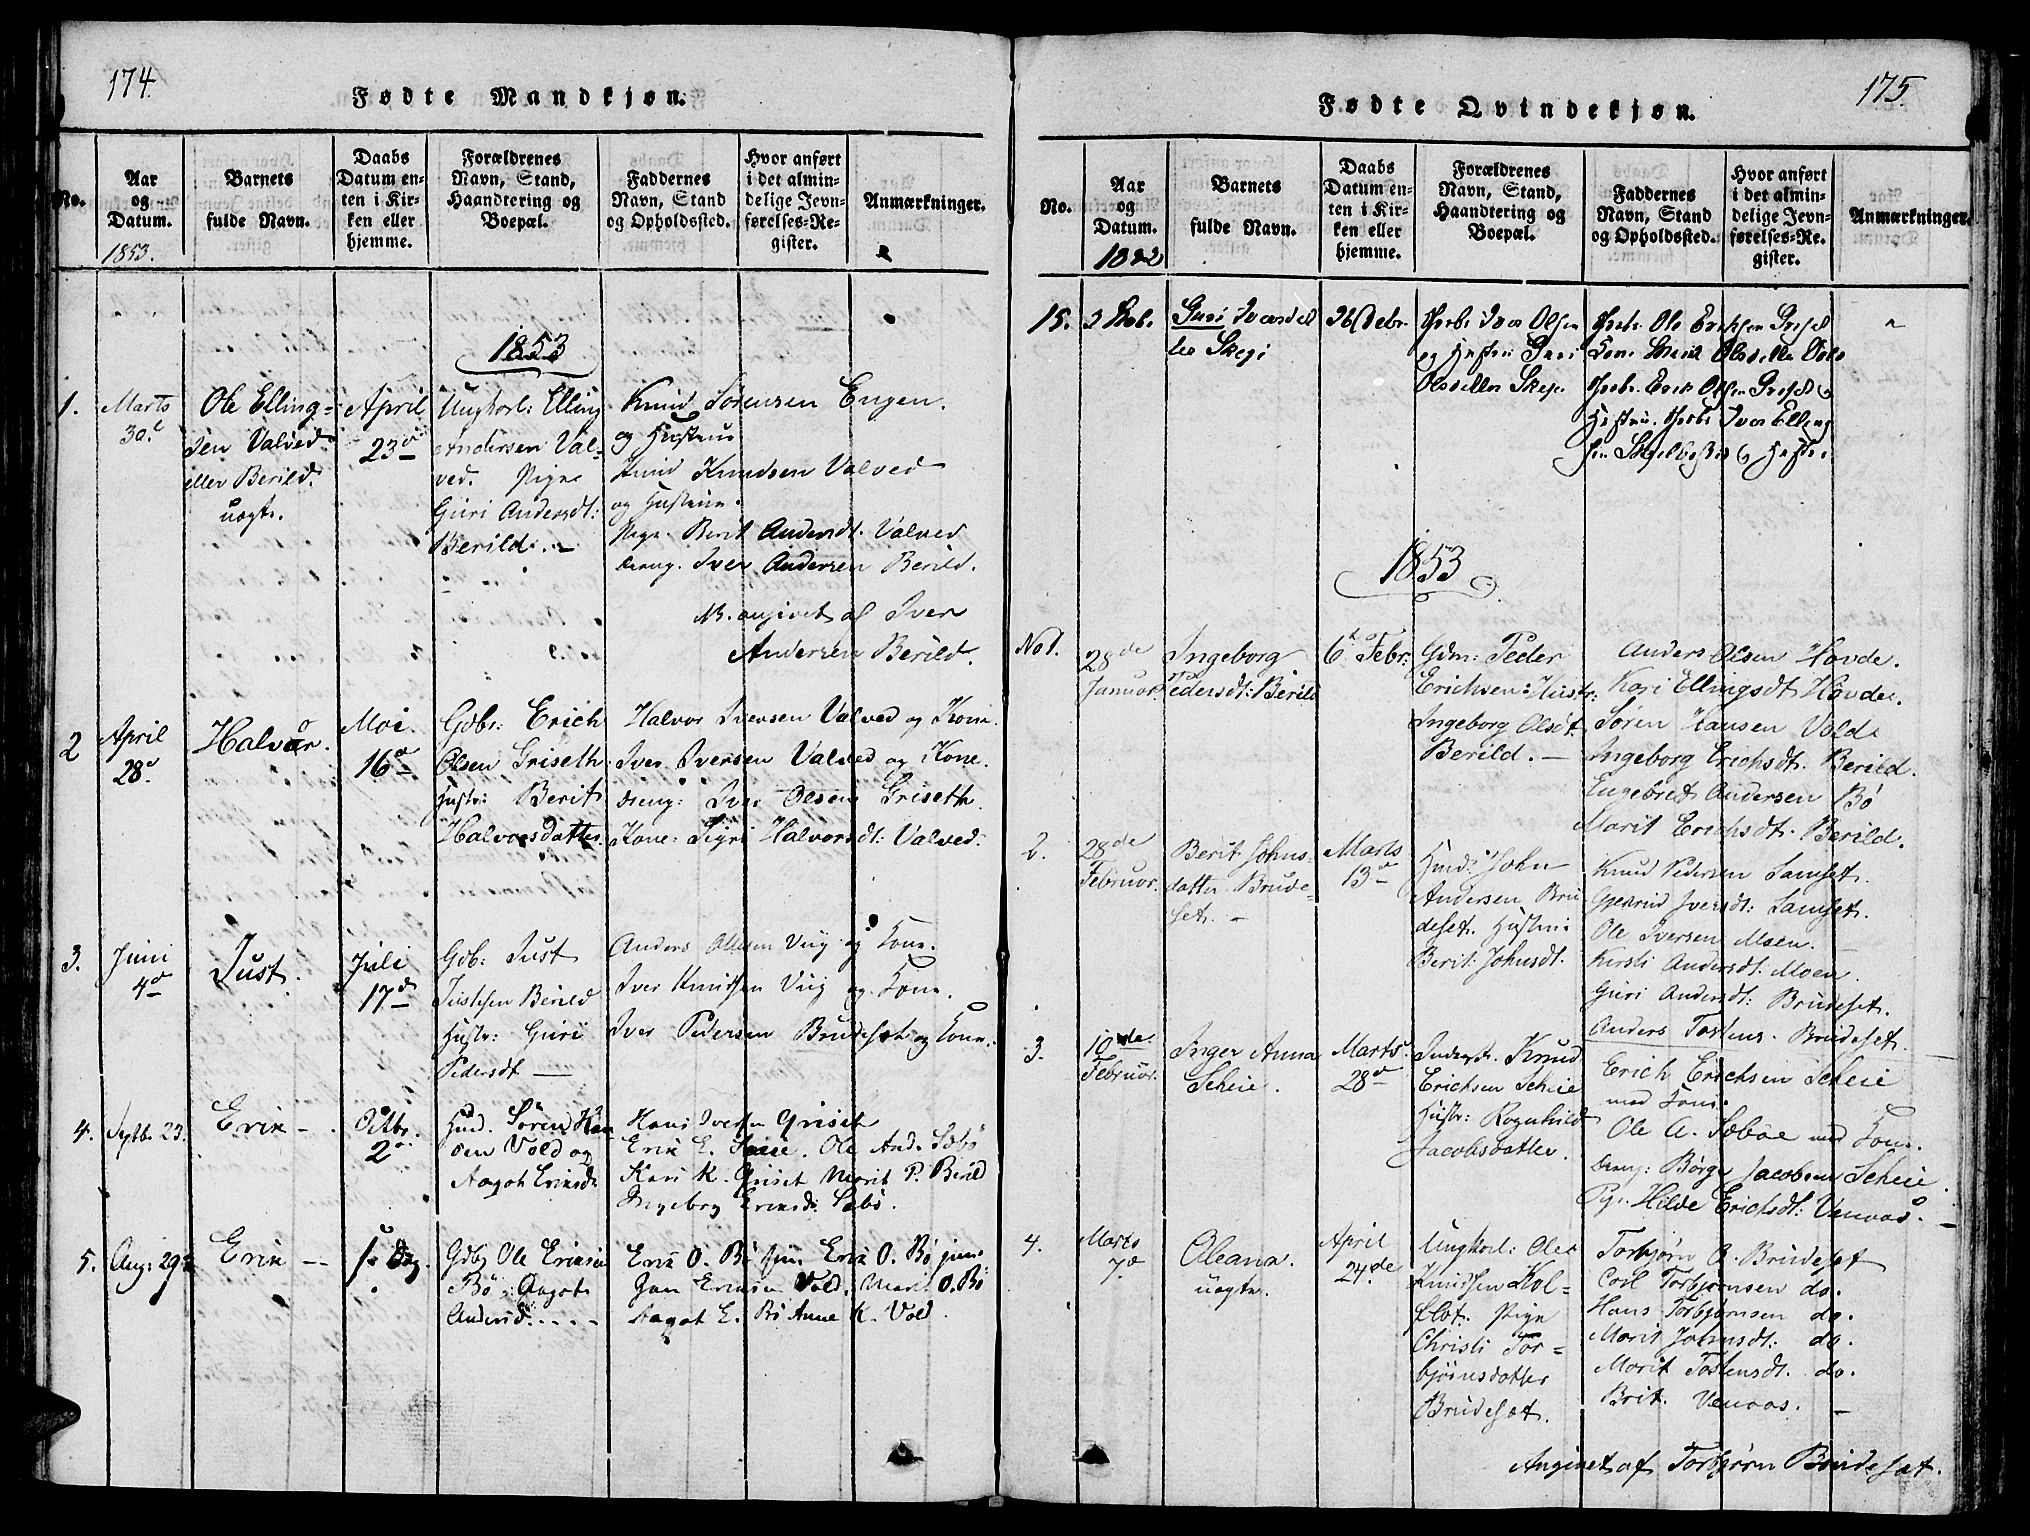 174.
Fødte Mandkjøn.
No.
Aar
og
Datum.
1853.
Barnets
fulde Navn.
Daabs
Datum en-
ten i Kir-
ken eller
hjemme.
Forældrenes
Navn, Stand,
Haandtering og
Boepæl.
Faddernes
Navn, Stand
og Opholdssted.
Hvor anført
i det almin-
delige Jevn-
førelses-Re-
gister.
Anmærkninger.
1853
1.
Marts
30d
Ole Elling-
sen Valved
eller Berild.
uægte.
April
23d
Ungkarl: Elling
Andersen Val-
ved. Pige
Guri Andersdt:
Berild. -
Knud Sørensen Engen.
og Hustrue
Knud Knudsen Valved
og Hustrue.
Pige Berit Andersdt. Valved
Dreng. Iver Andersen Berild.
NB. angivet af Iver
Andersen Berild.
2
April
28d
Halvor.
Mai
16d
Gdbr: Erich
Olsen Griseth
Hustr: Berit
Halvorsdatter.
Halvor Iversen Valved og Kone.
Iver Iversen Valved og Kone.
Dreng: Iver Olsen Griseth.
Kone: Sigri Halvorsdt: Valved.
3.
Juni
4d
Just.
Juli
17d
Gdb: Just
Justesen Berild
Hustr: Guri
Pedersdt. -
Anders Olesen Viig og Kone.
Iver Knudsen Viig og Kone.
Iver Pedersen Brudesæt og Kone.
4.
Septb. 23.
Erik - .
Octbr.
2d.
Hmd. Søren Han
sen Vold og
Aagot Eriksdt
Hans Iversen Griset
Erik E. . Ole And. Sæbø
Kari K. Griset Marit P. Berild
Ingebrg Eriksdt Sæbø.
5.
Aug: 29d
Erik --
Gdbg Ole Eriksen
Bø . Aagot
Andersd. - - - -
Erik O. Bø sen. Erik O. Bø jun.
Eriksen Vold. Marit O. Bø
Aagot E. Bø Anne K. Vold
175.
Fødte Qvindekjøn.
No.
Aar
og
Datum.
Barnets
fulde Navn.
Daabs
Datum en-
ten i Kir-
ken eller
hjemme.
Forældrenes
Navn, Stand,
Haandtering og
Boepæl.
Faddernes
Navn, Stand
og Opholdssted.
Hvor anført
i det almin-
delige Jevn-
førelses-Re-
gister.
Anmærkninger.
15.
Guri Iversdat
ter Skeje
26 Debr.
Iver Olsen
og Hustru Guri
Olsdatter Skeje
Ole Eriksen Griset
Olsdatter
Erik Olsen Griset &
Hustru. Iver Elling
sen & Hustru
1853
No 1.
28de
Januar.
Ingeborg
Pedersdt: Berild
6t Febr:
Gdm: Peder
Erichsen: Hustr:
Ingeborg Olsdt
Berild. -
Anders Olsen Hovde.
Kari Ellingsdt Hovde.
Søren Hansen Vold
Ingeborg Erichsdt. Berild.
Engebret Andersen Bø
Marit Erichsdt. Berild.
2.
28de
Februar.
Berit Johns-
datter Brude-
set. -
Marts
13d
Hmd: John
Andersen Bru
deset. Hustrue
Berit Johnsdt.
Knud Pedersen Samset.
Gjertrud Iversdt: Samset.
Ole Iversen Moen. -
Kirsti Andersdt: Moen.
Guri Andersdt: Brudeset.
Anders Tostens. Brudeset. -
3.
10de
Februar.
Inger Anna
Scheie.
Marts.
28d
Inderstr. Knud
Erichsen Scheie
Hustr: Ragnhild
Jacobsdatter.
Erich Erichsen Scheie
med Kone.
Ole A. Sæbøe med Kone.
Dreng: Børge Jacobsen Scheie.
Pg. Hilde Erichsdt: Venaas. -
4.
Marts
7d
Oleana.
uægte.
April
24de
Ungkarl: Ole
Knudsen Kol-
flot. Pige
Christi Tor-
bjørnsdatter
Brudesæt.
Torbjørn A. Brudeset
Carl Torbjørnsen do.
Hans Torbjørnsen do.
Marit Johnsdt: do.
Marit Tostensdt. do.
Brit. Venaas. -
Angivet af Torbjørn Brudesæt.